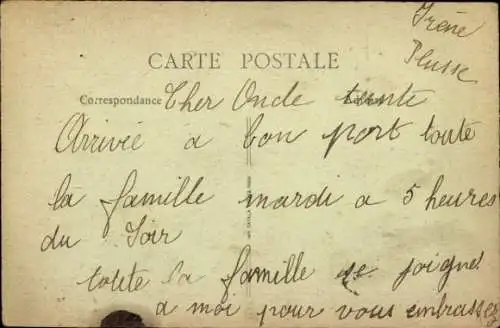 Irène
Plusse
CARTE POSTALE
Correspondance
Cher Oncle tante
Arrivée a bon port toute
la famille mardi a 5 heures
du Soir
toute la famille se joigne
a moi pour vous embrasser